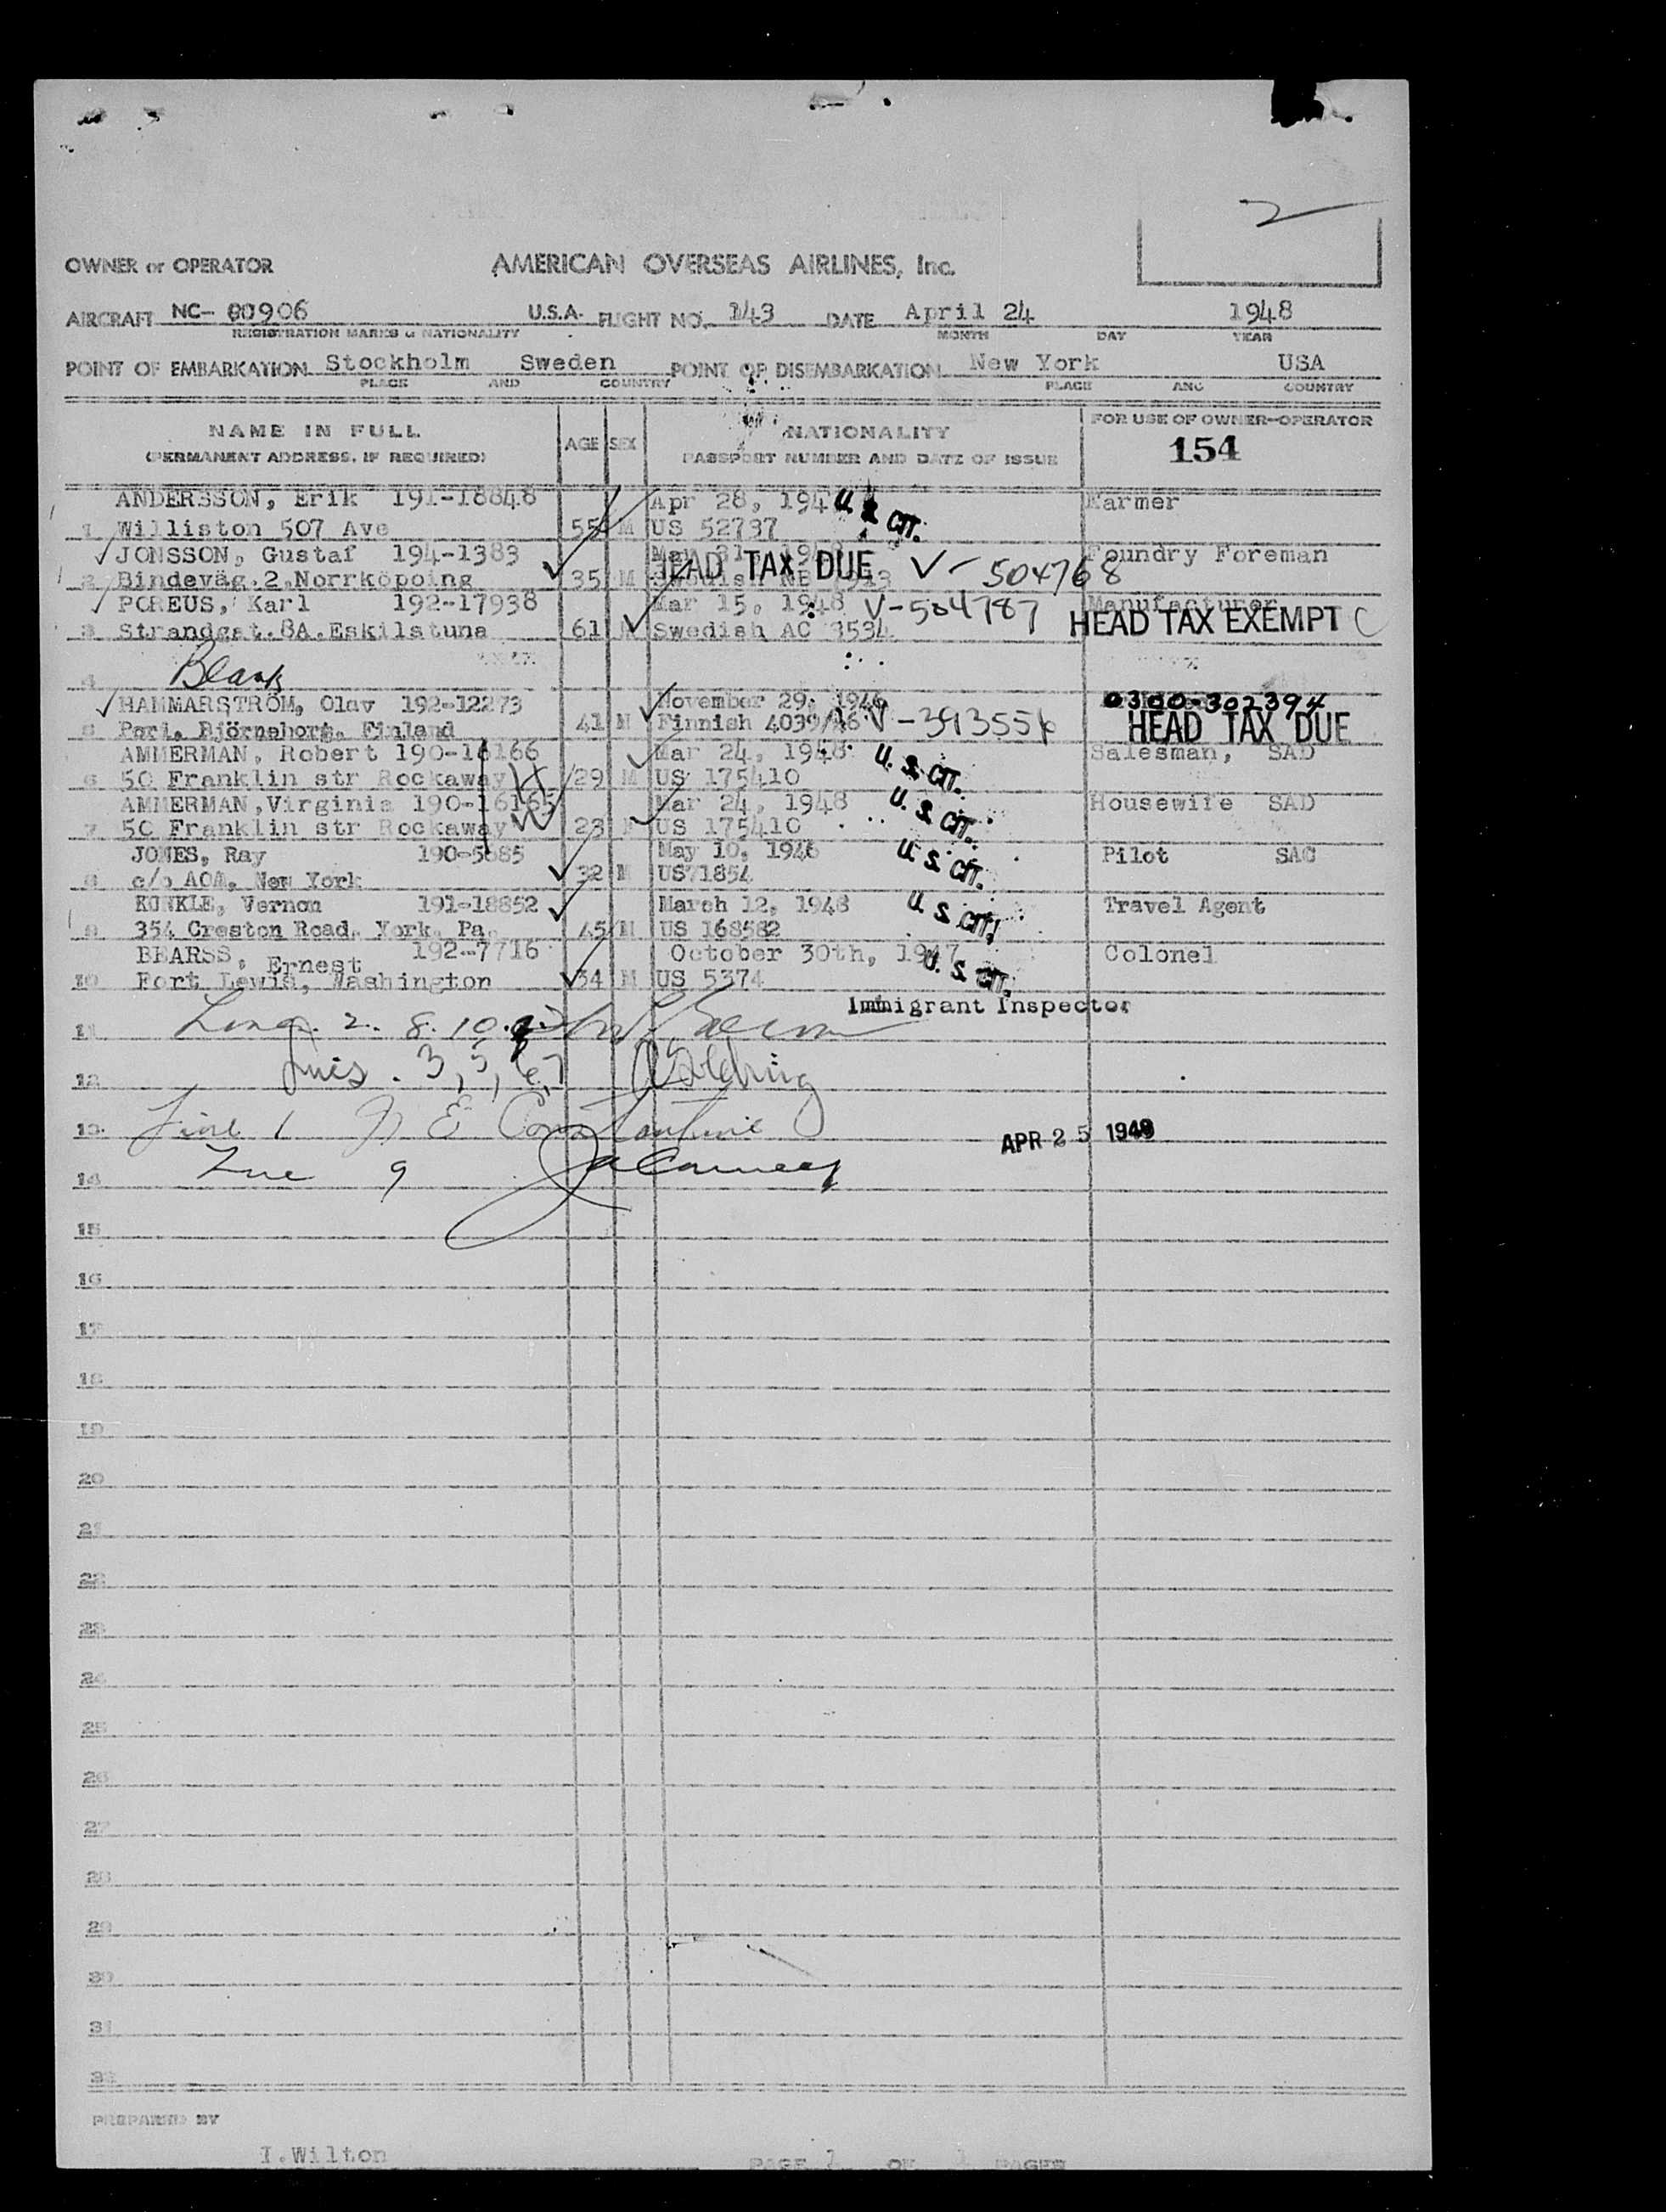 2
OWNER or OPERATOR AMERICAN OVERSEAS AIRLINES, Inc.
AIRCRAFT NC- 90906 U.S.A. FLIGHT NO. 143 DATE April 24 1948
REGISTRATION MARKS & NATIONALITY MONTH DAY YEAR
POINT OF EMBARKATION Stockholm Sweden POINT OF DISEMBARKATION New York USA
PLACE AND COUNTRY PLACE AND COUNTRY
NAME IN FULL AGE SEX NATIONALITY FOR USE OF OWNER-OPERATOR
(PERMANENT ADDRESS, IF REQUIRED) PASSPORT NUMBER AND DATE OF ISSUE 154
ANDERSSON, Erik 191-18848 Apr 28, 194 U. S. CIT. Farmer
1 Williston 507 Ave 55 M US 52737
JONSSON, Gustaf 194-1383 HEAD TAX DUE V-504768 Foundry Foreman
2 Bindeväg.2,Norrköpoing 35 M Swedish
POREUS, Karl 192-17938 Mar 15, 1948 V-504787 Manufacturer
3 Strandgat.8A.Eskilstuna 61 M Swedish AC 3534 HEAD TAX EXEMPT C
4 Blank
HAMMARSTRÖM, Olav 192-12273 November 29, 1946 0300-302394
5 Pori, Björneborg, Finland 41 M Finnish 4039/46 V-393556 HEAD TAX DUE
AMMERMAN, Robert 190-16166 Mar 24, 1948 U. S. CIT. Salesman, SAD
6 50 Franklin str Rockaway 29 M US 175410
AMMERMAN,Virginia 190-16165 Mar 24, 1948 U. S. CIT. Housewife SAD
7 50 Franklin str Rockaway 23 F US 175410
JONES, Ray 190-5685 May 10, 1946 U. S. CIT. Pilot SAC
8 c/o AOA, New York 32 M US 71854
KUNKLE, Vernon 191-18852 March 12, 1948 U. S. CIT. Travel Agent
9 354 Creston Road, York, Pa. 45 M US 168582
BEARSS, Ernest 192-7716 October 30th, 1947 U. S. CIT. Colonel
10 Fort Lewis, Washington 34 M US 5374
Immigrant Inspector
11 Lines. 2. 8. 10.
12 Lines. 3, 5, 6, 7
13 Line 1 N E Constantine APR 25 1948
14 Line 9
15
16
17
18
19
20
21
22
23
24
25
26
27
28
29
30
31
32
PREPARED BY
I.Wilton PAGE 1 OF 1 PAGES